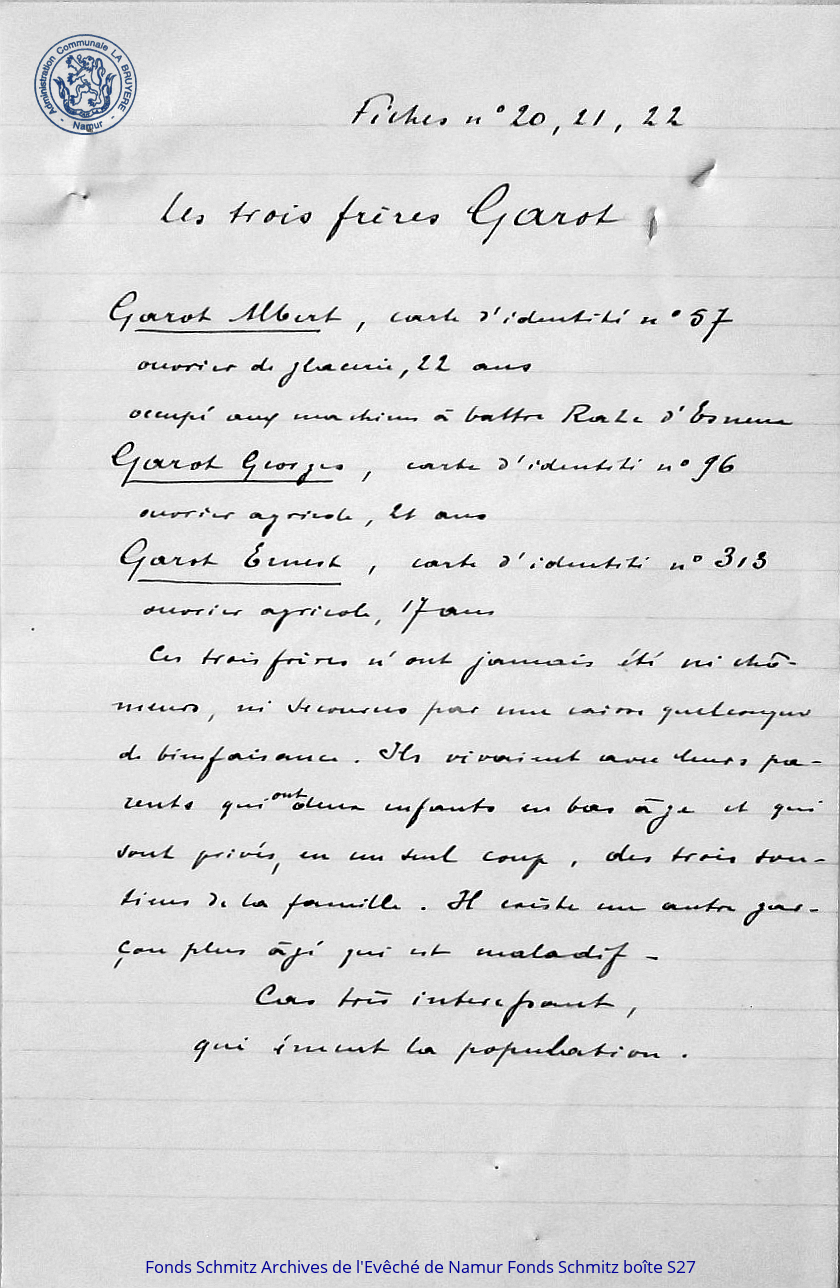 Administration Communale LA BRUYERE - Namur -
Fiches n° 20, 21, 22
Les trois frères Garot
Garot Albert, carte d'identité n° 57
ouvrier de glacerie, 22 ans
occupé aux machines à battre d'Esneux
Garot Georges, carte d'identité n° 96
ouvrier agricole, 21 ans
Garot Ernest, carte d'identité n° 313
ouvrier agricole, 17 ans
Ces trois frères n'ont jamais été ni chô-
meurs, ni secourus par une caisse quelconque
de bienfaisance. Ils vivaient avec leurs pa-
rents qui ont deux enfants en bas âge et qui
sont privés, en un seul coup, des trois sou-
tiens de la famille. Il existe un autre gar-
çon plus âgé qui est maladif -
Cas très intéressant,
qui émeut la population.
Fonds Schmitz Archives de l'Evêché de Namur Fonds Schmitz boîte S27